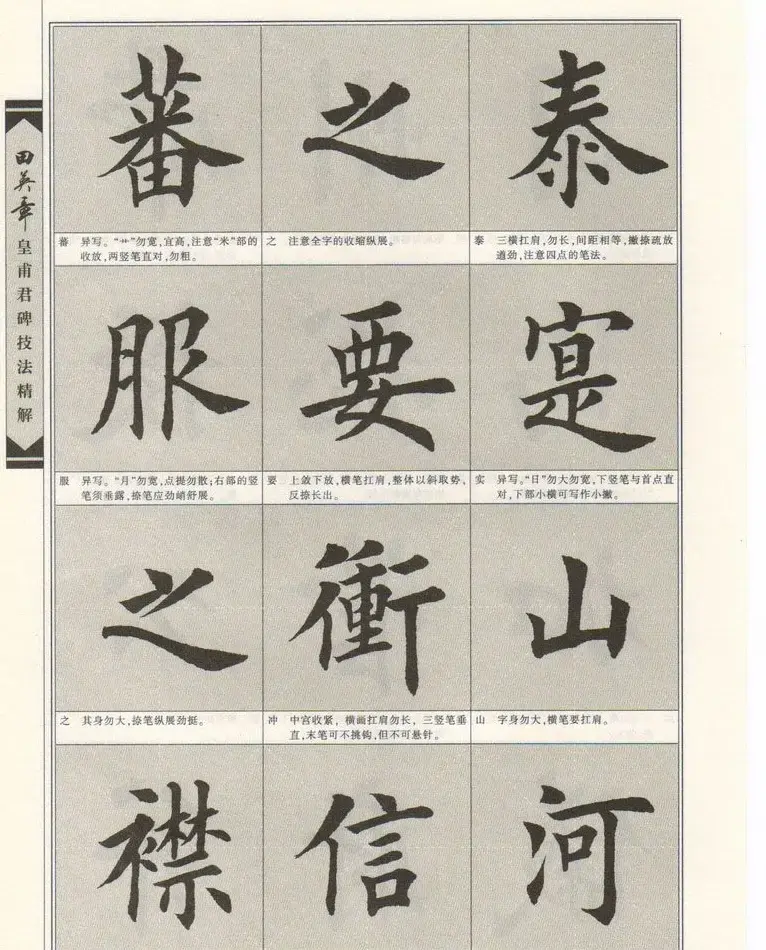 田英章
皇甫君碑技法精解
泰
之
蕃
泰 三横扛肩,勿长,间距相等,撇捺疏放
遒劲,注意四点的笔法。
之 注意全字的收缩纵展。
蕃 异写。“艹”勿宽,宜高,注意“米”部的
收放,两竖笔直对,勿粗。
寔
要
服
实 异写。“日”勿大勿宽,下竖笔与首点直
对,下部小横可写作小撇。
要 上敛下放,横笔扛肩,整体以斜取势、
反捺长出。
服 异写。“月”勿宽,点提勿散;右部的竖
笔须垂露,捺笔应劲峭舒展。
山
衝
之
山 字身勿大,横笔要扛肩。
冲 中宫收紧,横画扛肩勿长,三竖笔垂
直,末笔可不挑钩,但不可悬针。
之 其身勿大,捺笔纵展劲挺。
河
信
襟